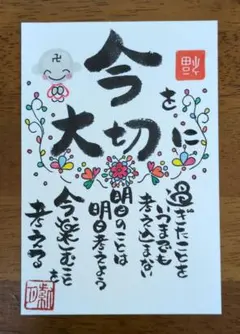 卍
今を
大切に
過ぎたことを
いつまでも
考え込まない
明日のことは
明日考えよう
今、楽しむことを
考える